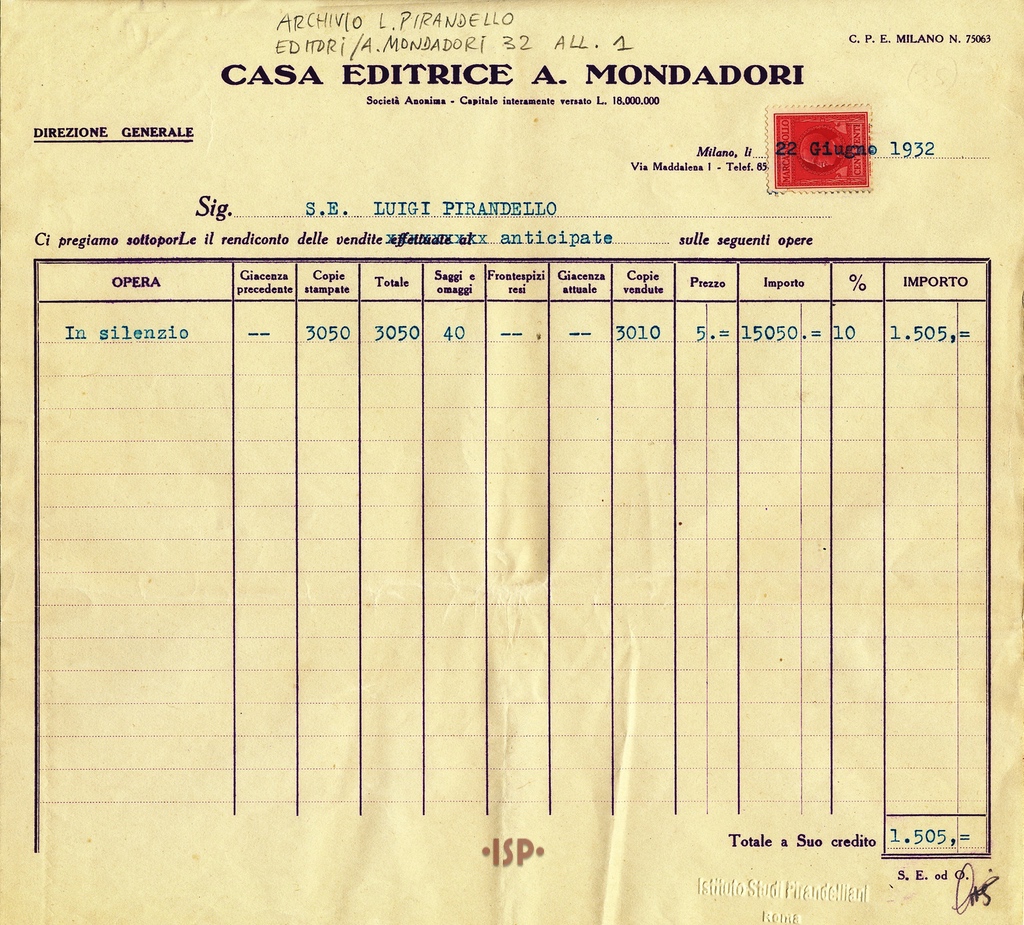 ARCHIVIO L. PIRANDELLO
EDITORI/A. MONDADORI 32 ALL. 1
C. P. E. MILANO N. 75063
CASA EDITRICE A. MONDADORI
Società Anonima - Capitale interamente versato L. 18.000.000
DIREZIONE GENERALE
Milano, lì 22 Giugno 1932
Via Maddalena 1 - Telef. 85
Sig. S.E. LUIGI PIRANDELLO
Ci pregiamo sottoporLe il rendiconto delle vendite anticipate sulle seguenti opere
OPERA Giacenza precedente Copie stampate Totale Saggi e omaggi Frontespizi resi Giacenza attuale Copie vendute Prezzo Importo % IMPORTO
In silenzio -- 3050 3050 40 -- -- 3010 5.= 15050.= 10 1.505,=
Totale a Suo credito 1.505,=
·ISP·
S. E. od O.
Istituto Studi Pirandelliani
Roma